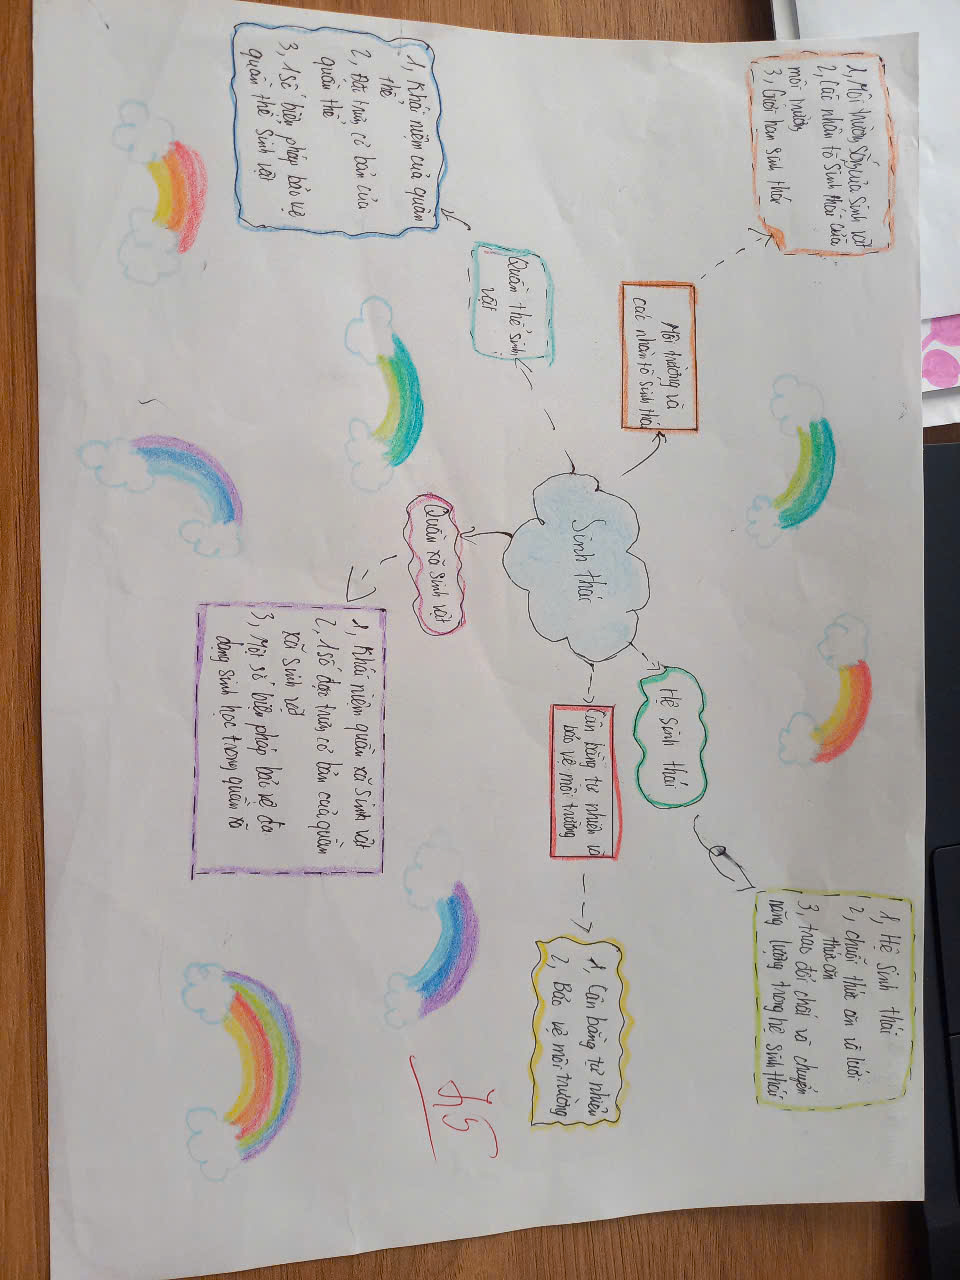 Sinh thái
Môi trường và
các nhân tố sinh thái
1, Môi trường sống của sinh vật
2, Các nhân tố sinh thái của
môi trường
3, Giới hạn sinh thái
Quần thể sinh
vật
1, Khái niệm của quần
thể
2, Đặc trưng cơ bản của
quần thể
3, 1 số biện pháp bảo vệ
quần thể sinh vật
Quần xã sinh vật
1, Khái niệm quần xã sinh vật
2, 1 số đặc trưng cơ bản của quần
xã sinh vật
3, Một số biện pháp bảo vệ đa
dạng sinh học trong quần xã
Hệ sinh thái
1, Hệ sinh thái
2, chuỗi thức ăn và lưới
thức ăn
3, trao đổi chất và chuyển
năng lượng trong hệ sinh thái
Cân bằng tự nhiên và
bảo vệ môi trường
1, Cân bằng tự nhiên
2, Bảo vệ môi trường
7,5